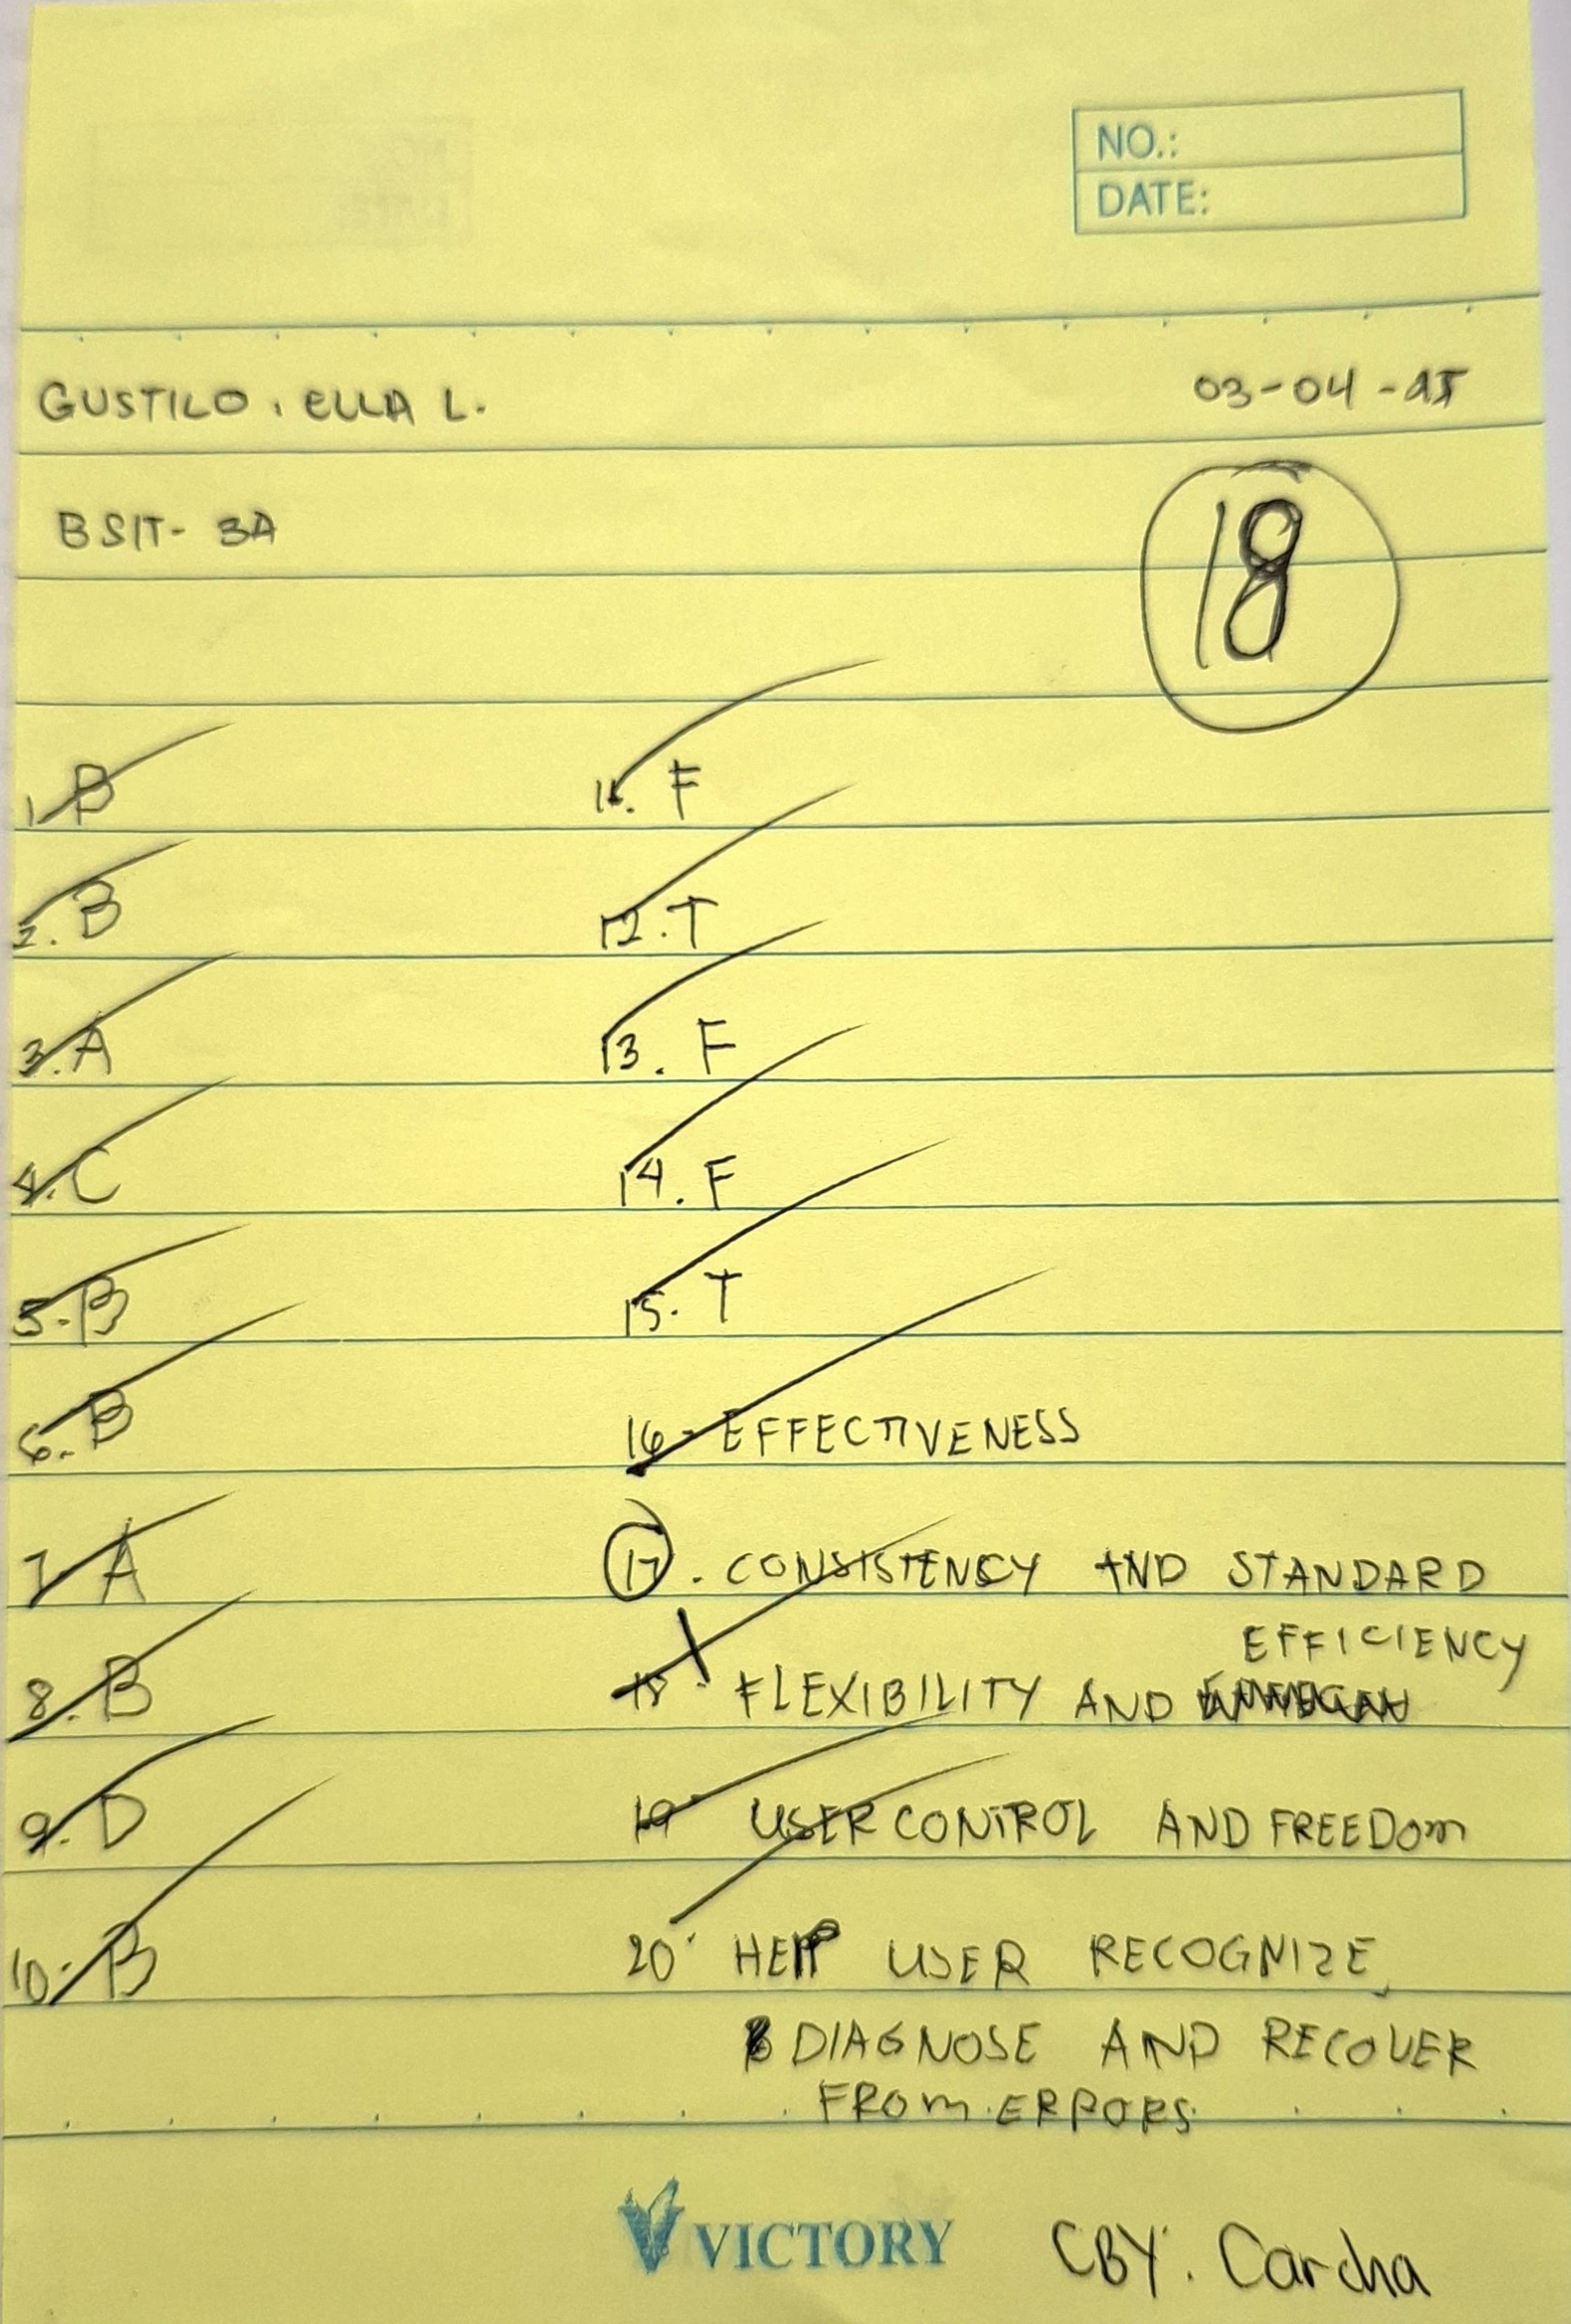 NO.:
DATE:
GUSTILO, ELLA L.
03-04-25
BSIT- 3A
18
1. B
2. B
3. A
4. C
5. B
6. B
7. A
8. B
9. D
10. B
11. F
12. T
13. F
14. F
15. T
16. EFFECTIVENESS
17. CONSISTENCY AND STANDARD
EFFICIENCY
18. FLEXIBILITY AND
19. USER CONTROL AND FREEDOM
20. HELP USER RECOGNIZE,
DIAGNOSE AND RECOVER
FROM ERRORS
VICTORY
CBY: Carcha